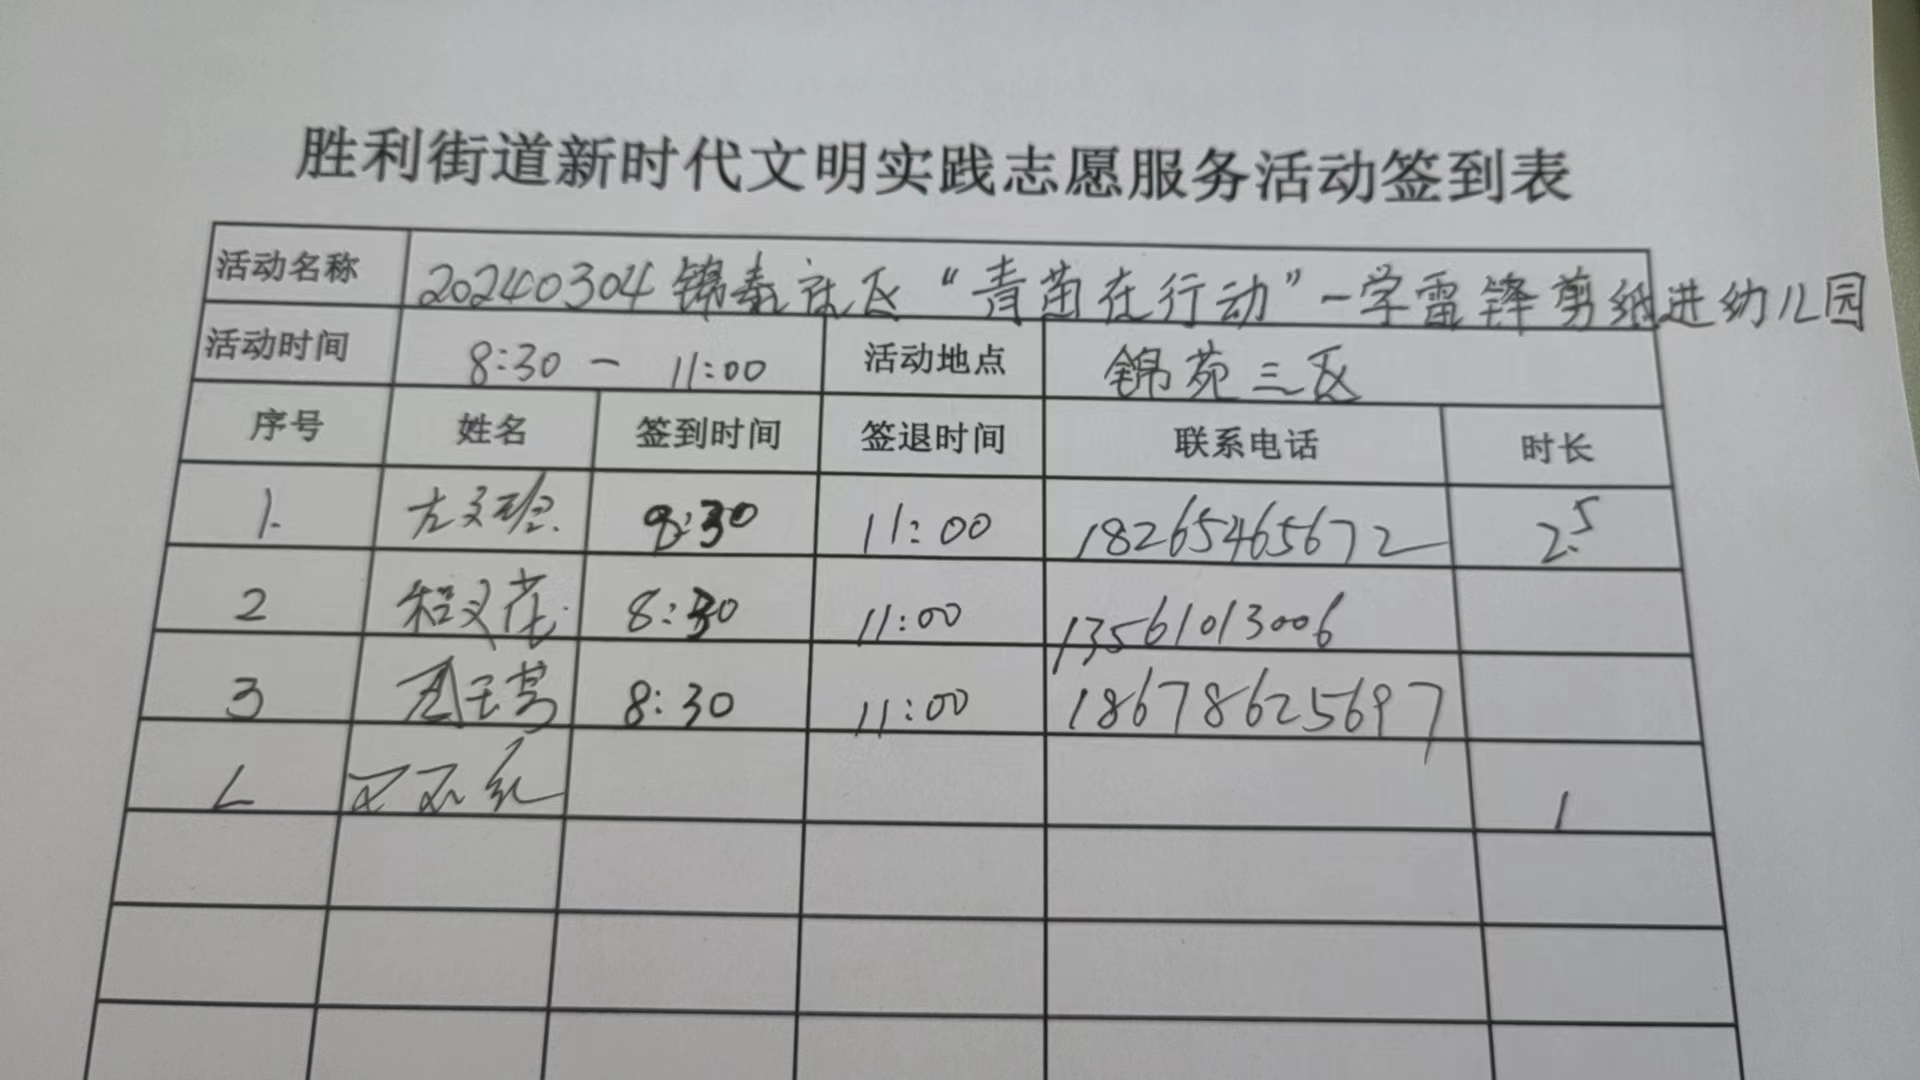 胜利街道新时代文明实践志愿服务活动签到表
活动名称 20240304锦泰社区“青苗在行动”-学雷锋剪纸进幼儿园
活动时间 8:30 - 11:00 活动地点 锦苑三区
序号 姓名 签到时间 签退时间 联系电话 时长
1. 8:30 11:00 18265465672 2.5
2 程义花 8:30 11:00 13561013006
3 8:30 11:00 18678625697
1